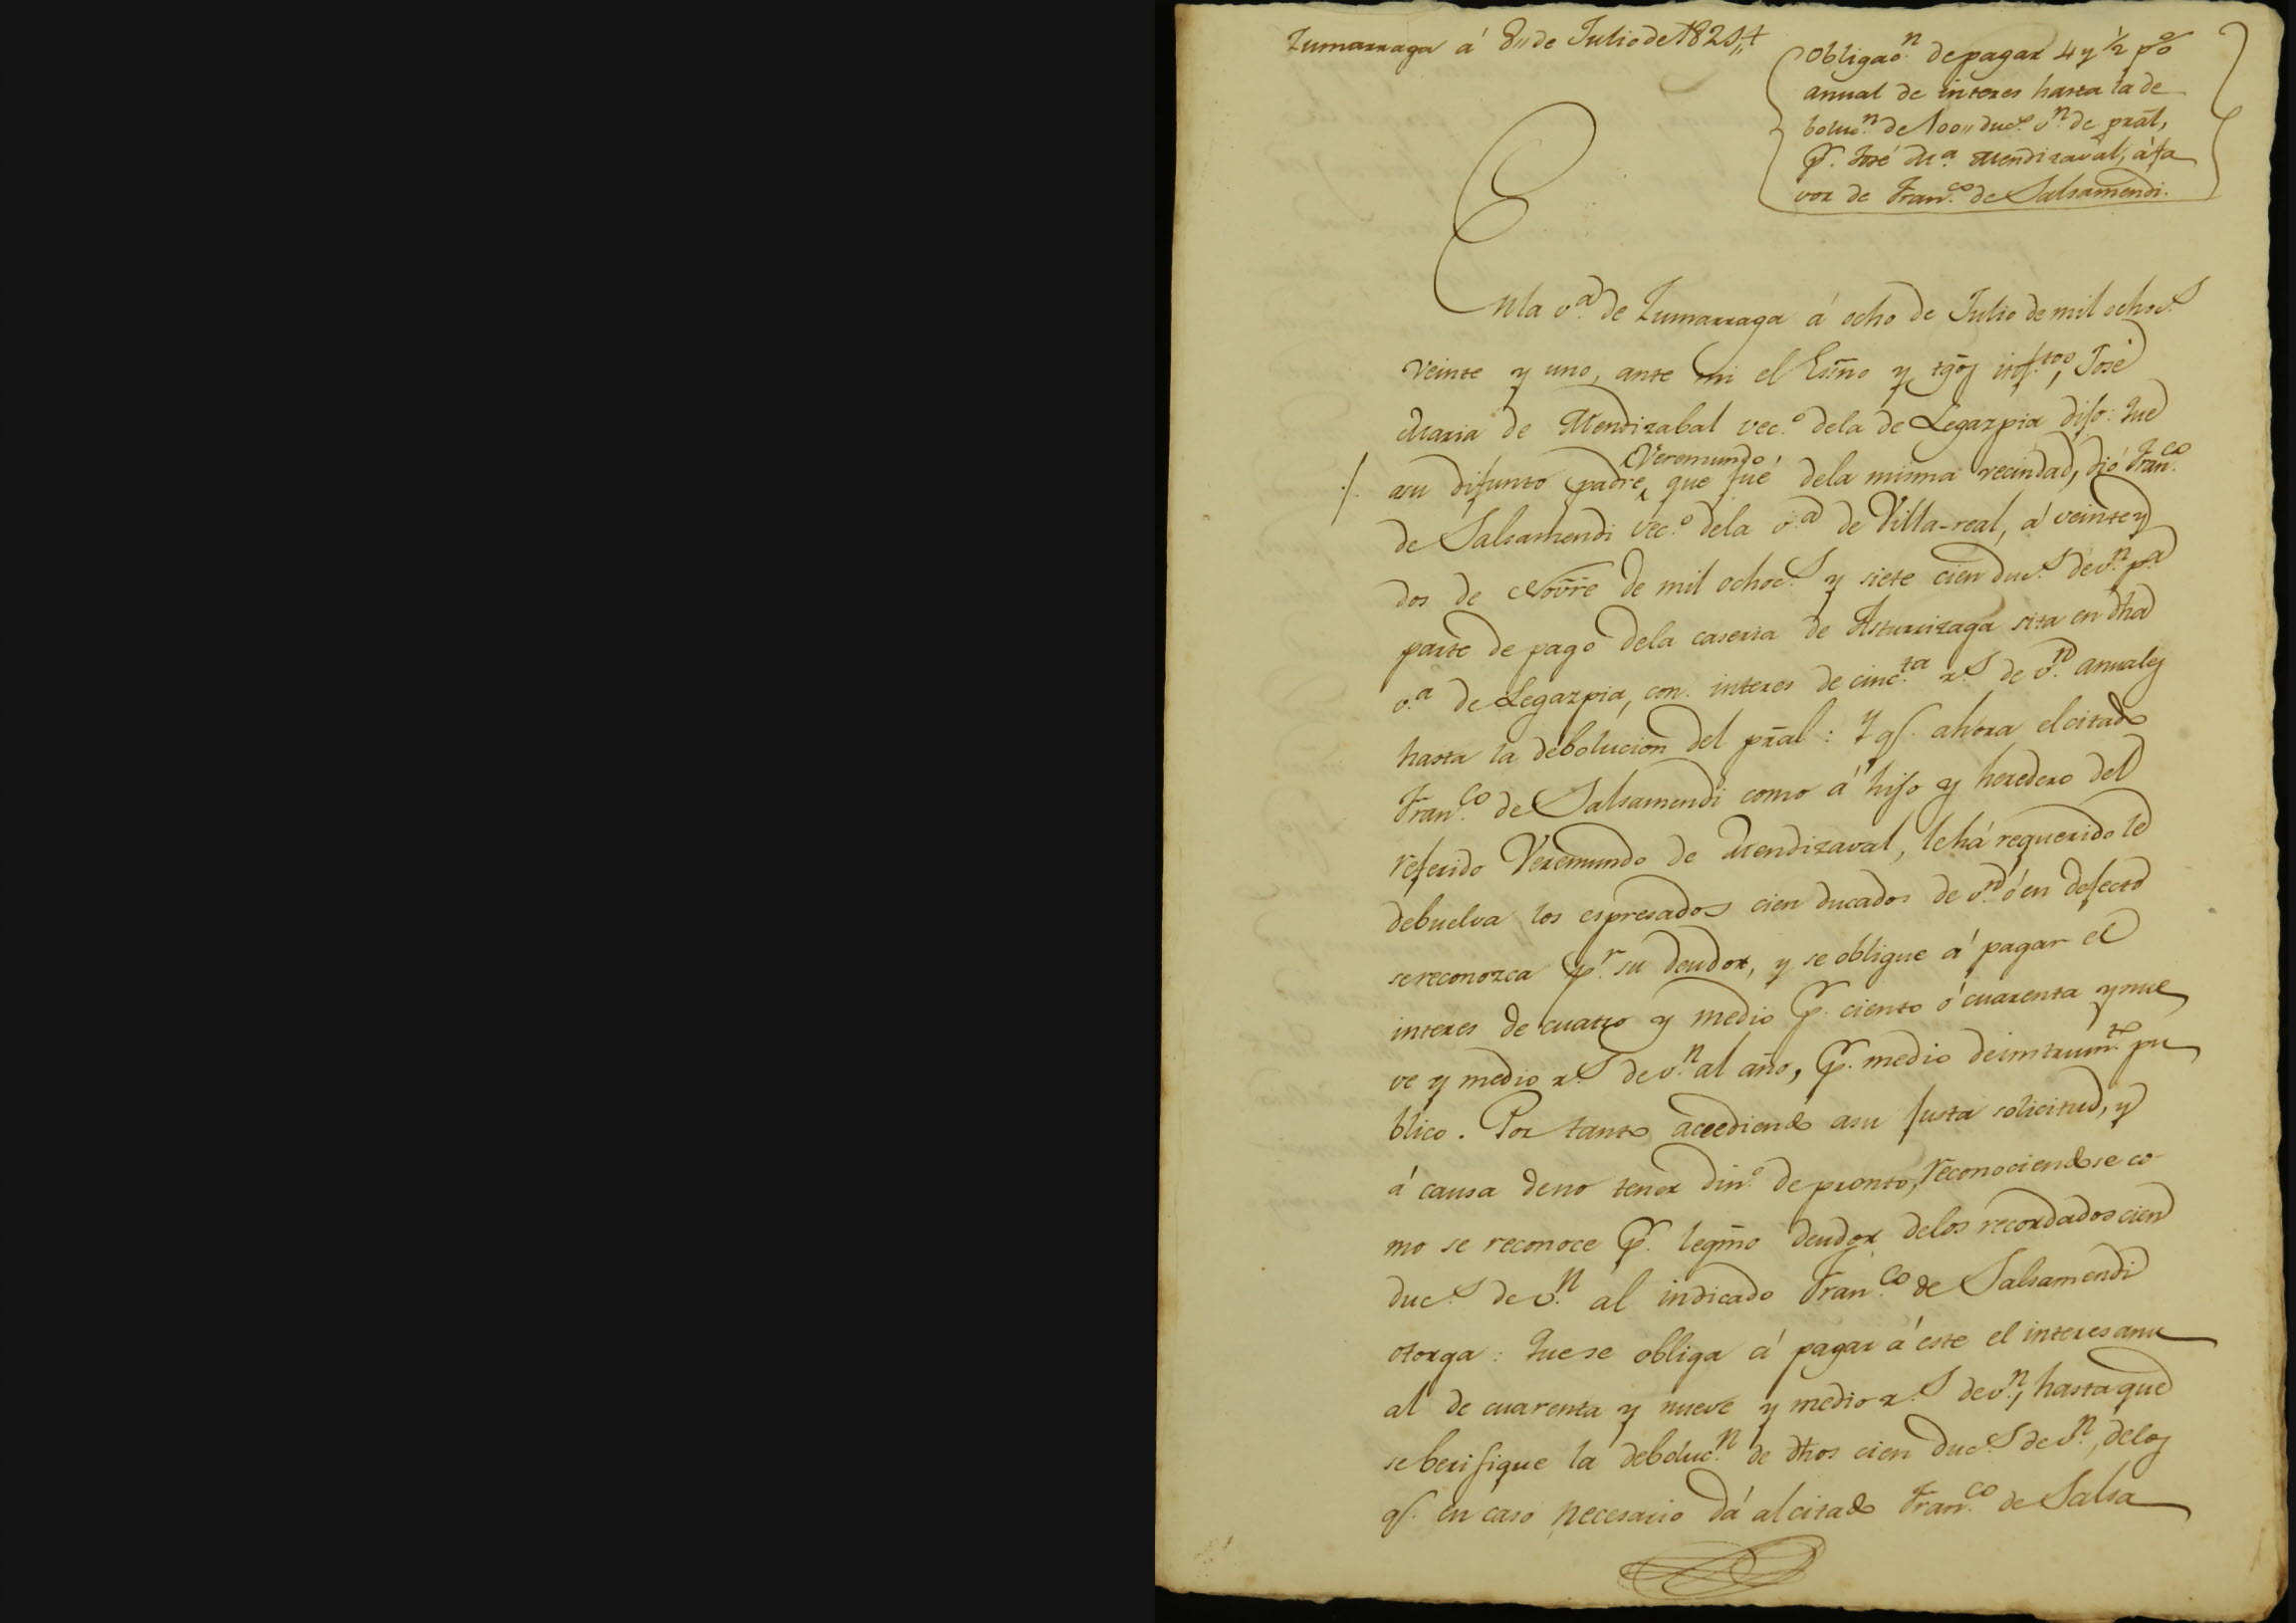 Zumarraga á 8,, de Julio de 1821,,
Obligaón. de pagar 4 y 1/2 p%
anual de interes hasta la de
boluc.n de 100,, duc.s v.n de prãl,
p.r José M.a Mendizaval, á fa
vor de Fran.co de Salsamendi.
En la v.a de Zumarraga á ocho de Julio de mil ochoc.s
veinte y uno, ante mi el Esno y tgõs infros, José
Maria de Mendizabal vec.o dela de Legazpia dijo: Que
Veremundo
./. asu difunto padre ^ que fué dela misma vecindad, dió Fran.co
de Salsamendi vec.o dela v.a de Villa-real, á veinte y
dos de Novre de mil ochoc.s y siete cien duc.s de v.n p.a
parte de pago dela caseria de Asturrizaga sita en dha
v.a de Legazpia, con interes de cinc.ta r.s de v.n anuales
hasta la debolucion del prãl: Y q.e ahora el citado
Fran.co de Salsamendi como á hijo y heredero del
referido Veremundo de Mendizaval, le há requerido le
debuelva los espresados cien ducados de v.n ó en defecto
se reconozca p.r su deudor, y se obligue á pagar el
interes de cuatro y medio p.r ciento ó cuarenta y nue
ve y medio r.s de v.n al año, p.r medio de instrum.to pu
blico. Por tanto accediendo asu justa solicitud, y
á causa deno tener din.o de pronto, reconociendose co-
mo se reconoce p.r legmo deudor delos recordados cien
duc.s de v.n al indicado Fran.co de Salsamendi
otorga: Que se obliga á pagar á este el interes anu
al de cuarenta y nueve y medio r.s de v.n, hasta que
se berifique la deboluc.n de dhos cien duc.s de v.n, delos
q.e en caso necesario dá al citado Fran.co de Salsa